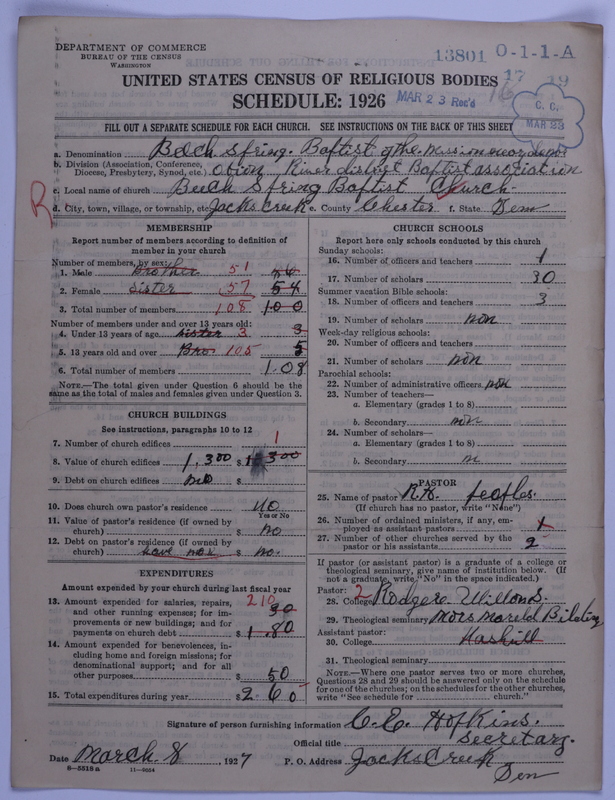 DEPARTMENT OF COMMERCE
BUREAU OF THE CENSUS
WASHINGTON
13801 0-1-1-A
17 19
16
UNITED STATES CENSUS OF RELIGIOUS BODIES
SCHEDULE: 1926
MAR 23 Rec'd
C. C.
MAR 23
FILL OUT A SEPARATE SCHEDULE FOR EACH CHURCH. SEE INSTRUCTIONS ON THE BACK OF THIS SHEET
R
a. Denomination Bech Spring. Baptist of the
b. Division (Association, Conference, Diocese, Presbytery, Synod, etc.) obion River district Baptist association
c. Local name of church Beech Spring Baptist Church
d. City, town, village, or township, etc. Jacks Creek e. County Chester f. State Tenn
MEMBERSHIP
Report number of members according to definition of
member in your church
Number of members, by sex:
1. Male Brother 51
2. Female Sister 57 54
3. Total number of members 108 100
Number of members under and over 13 years old:
4. Under 13 years of age sister 3 3
5. 13 years old and over Bro 105 5
6. Total number of members 108
NOTE.—The total given under Question 6 should be the
same as the total of males and females given under Question 3.
CHURCH BUILDINGS
See instructions, paragraphs 10 to 12
7. Number of church edifices 1
8. Value of church edifices 1.300 $ 1300
9. Debt on church edifices no $
10. Does church own pastor's residence no
Yes or No
11. Value of pastor's residence (if owned by
church) $ no
12. Debt on pastor's residence (if owned by
church) have non $ no.
EXPENDITURES
Amount expended by church during last fiscal year
13. Amount expended for salaries, repairs, 210
and other running expenses; for im-
provements or new buildings; and for
payments on church debt $ 1.80
14. Amount expended for benevolences, in-
cluding home and foreign missions; for
denominational support; and for all
other purposes $ 50
15. Total expenditures during year $ 260
CHURCH SCHOOLS
Report here only schools conducted by this church
Sunday schools:
16. Number of officers and teachers 1
17. Number of scholars 30
Summer vacation Bible schools:
18. Number of officers and teachers 3
19. Number of scholars non
Week-day religious schools:
20. Number of officers and teachers
21. Number of scholars non
Parochial schools:
22. Number of administrative officers non
23. Number of teachers—
a. Elementary (grades 1 to 8)
b. Secondary non
24. Number of scholars—
a. Elementary (grades 1 to 8)
b. Secondary
PASTOR
25. Name of pastor R.N. Peoples.
(If church has no pastor, write "None")
26. Number of ordained ministers, if any, em-
ployed as assistant pastors 1
27. Number of other churches served by the
pastor or his assistants 2
If pastor (or assistant pastor) is a graduate of a college or
theological seminary, give name of institution below. (If
not a graduate, write "No" in the space indicated.)
Pastor: 2
28. College
29. Theological seminary
Assistant pastor:
30. College
31. Theological seminary
NOTE.—Where one pastor serves two or more churches,
Questions 28 and 29 should be answered only on the schedule
for one of the churches; on the schedules for the other churches,
write "See schedule for church."
Signature of person furnishing information C. E. Hopkins.
Official title Secretary.
Date March 8 1927 P. O. Address Jacks Creek
8—5518 a 11—9054 Ten